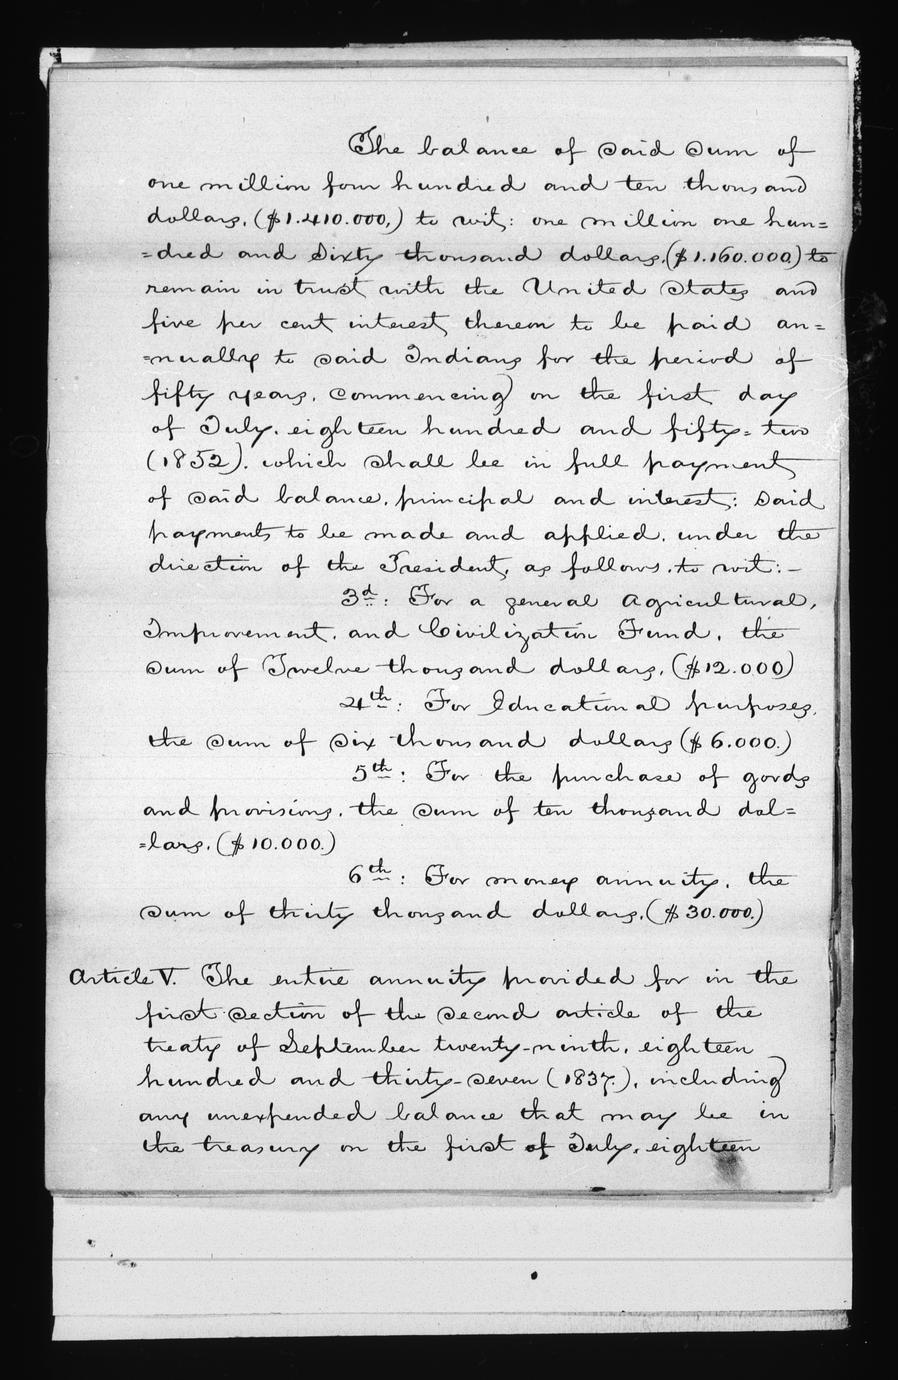 The balance of said sum of
one million four hundred and ten thousand
dollars, ($1.410.000,) to wit: one million one hun=
=dred and sixty thousand dollars, ($1.160.000) to
remain in trust with the United States and
five per cent interest thereon to be paid an=
=nually to said Indians for the period of
fifty years, commencing on the first day
of July, eighteen hundred and fifty-two
(1852), which shall be in full payment
of said balance, principal and interest: said
payments to be made and applied, under the
direction of the President, as follows, to wit:-
3d: For a general Agricultural,
Improvement, and Civilization Fund, the
sum of Twelve thousand dollars, ($12.000)
4th: For Educational purposes,
the sum of six thousand dollars ($6.000.)
5th: For the purchase of goods
and provisions, the sum of ten thousand dol=
=lars, ($10.000.)
6th: For money annuity, the
sum of thirty thousand dollars, ($30.000.)
Article V. The entire annuity provided for in the
first section of the second article of the
treaty of September twenty-ninth, eighteen
hundred and thirty-seven (1837.), including
any unexpended balance that may be in
the treasury on the first of July, eighteen